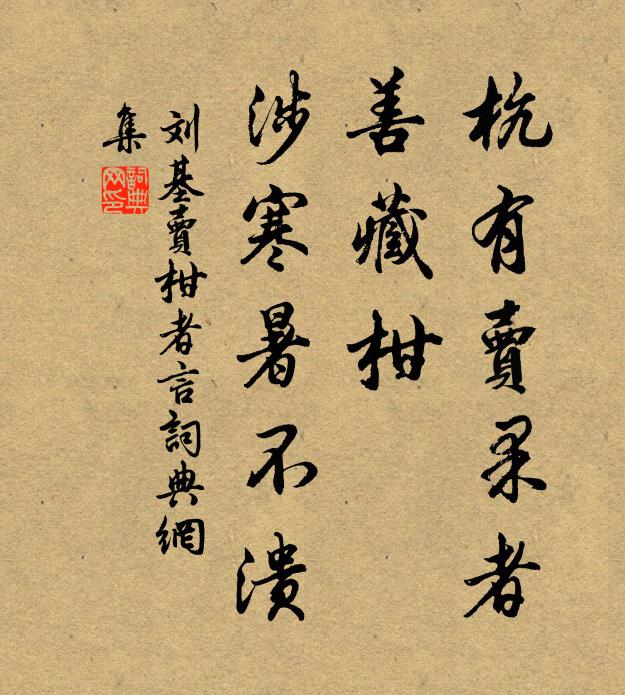 杭有賣果者
善藏柑
涉寒暑不潰
刘基賣柑者言詞典網
集
詞典
网印